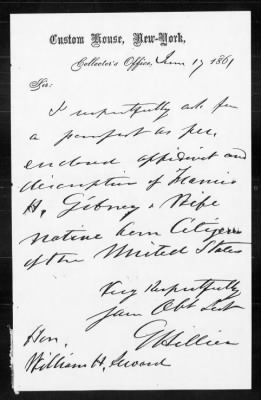 Custom House, New-York,
Collector's Office, June 17 1861
Sir:
I respectfully ask for
a passport as per
enclosed affidavit and
description of Francis
H. Gibney & Wife
native born Citizens
of the United States
Very Respectfully
Your Obt Svt
G Hillier
Hon.
William H. Seward